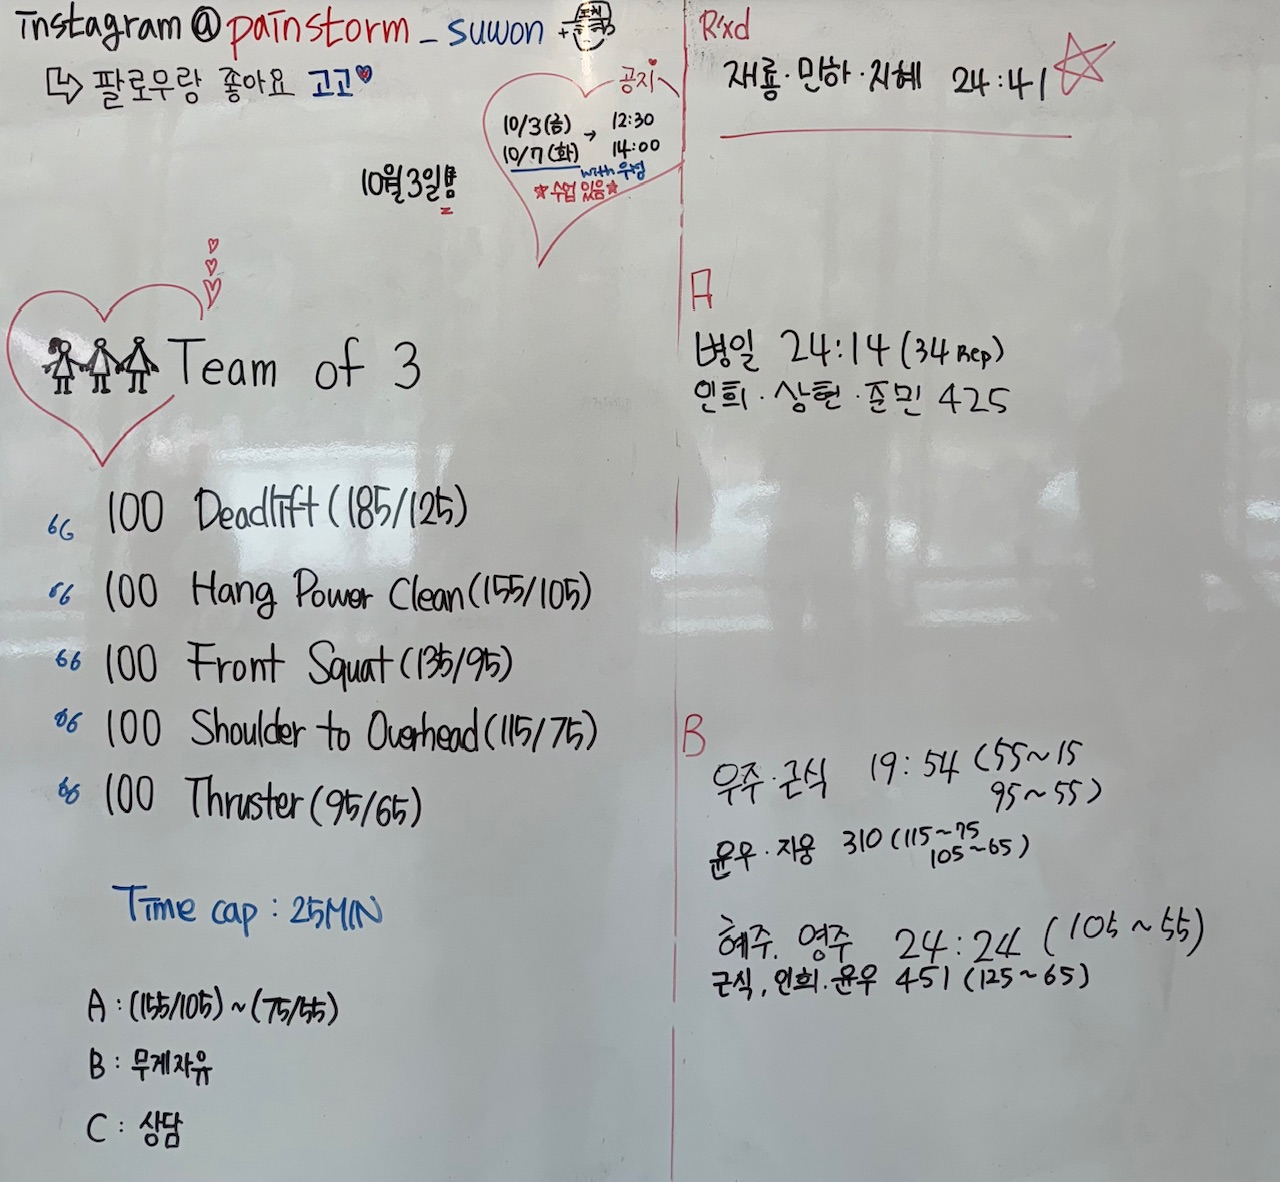 instagram @painstorm_suwon +
팔로우랑 좋아요 고고
공지
10/3(금) → 12:30
10/7(화) 14:00
with 우성
☆수업 있음☆
10월3일
Team of 3
66 100 Deadlift(185/125)
66 100 Hang Power Clean(155/105)
66 100 Front Squat(135/95)
66 100 Shoulder to Overhead(115/75)
66 100 Thruster(95/65)
Time cap : 25MIN
A : (155/105)~(75/55)
B : 무게자유
C : 상담
R'xd
재룡·민하·지혜 24:41
A
병일 24:14(34 Rep)
인희·상현·준민 425
B
우주·근식 19:54 (55~15
95~55)
윤우·지웅 310 (115~75
105~65)
혜주. 영주 24:24 (105~55)
근식, 인희.윤우 451 (125~65)